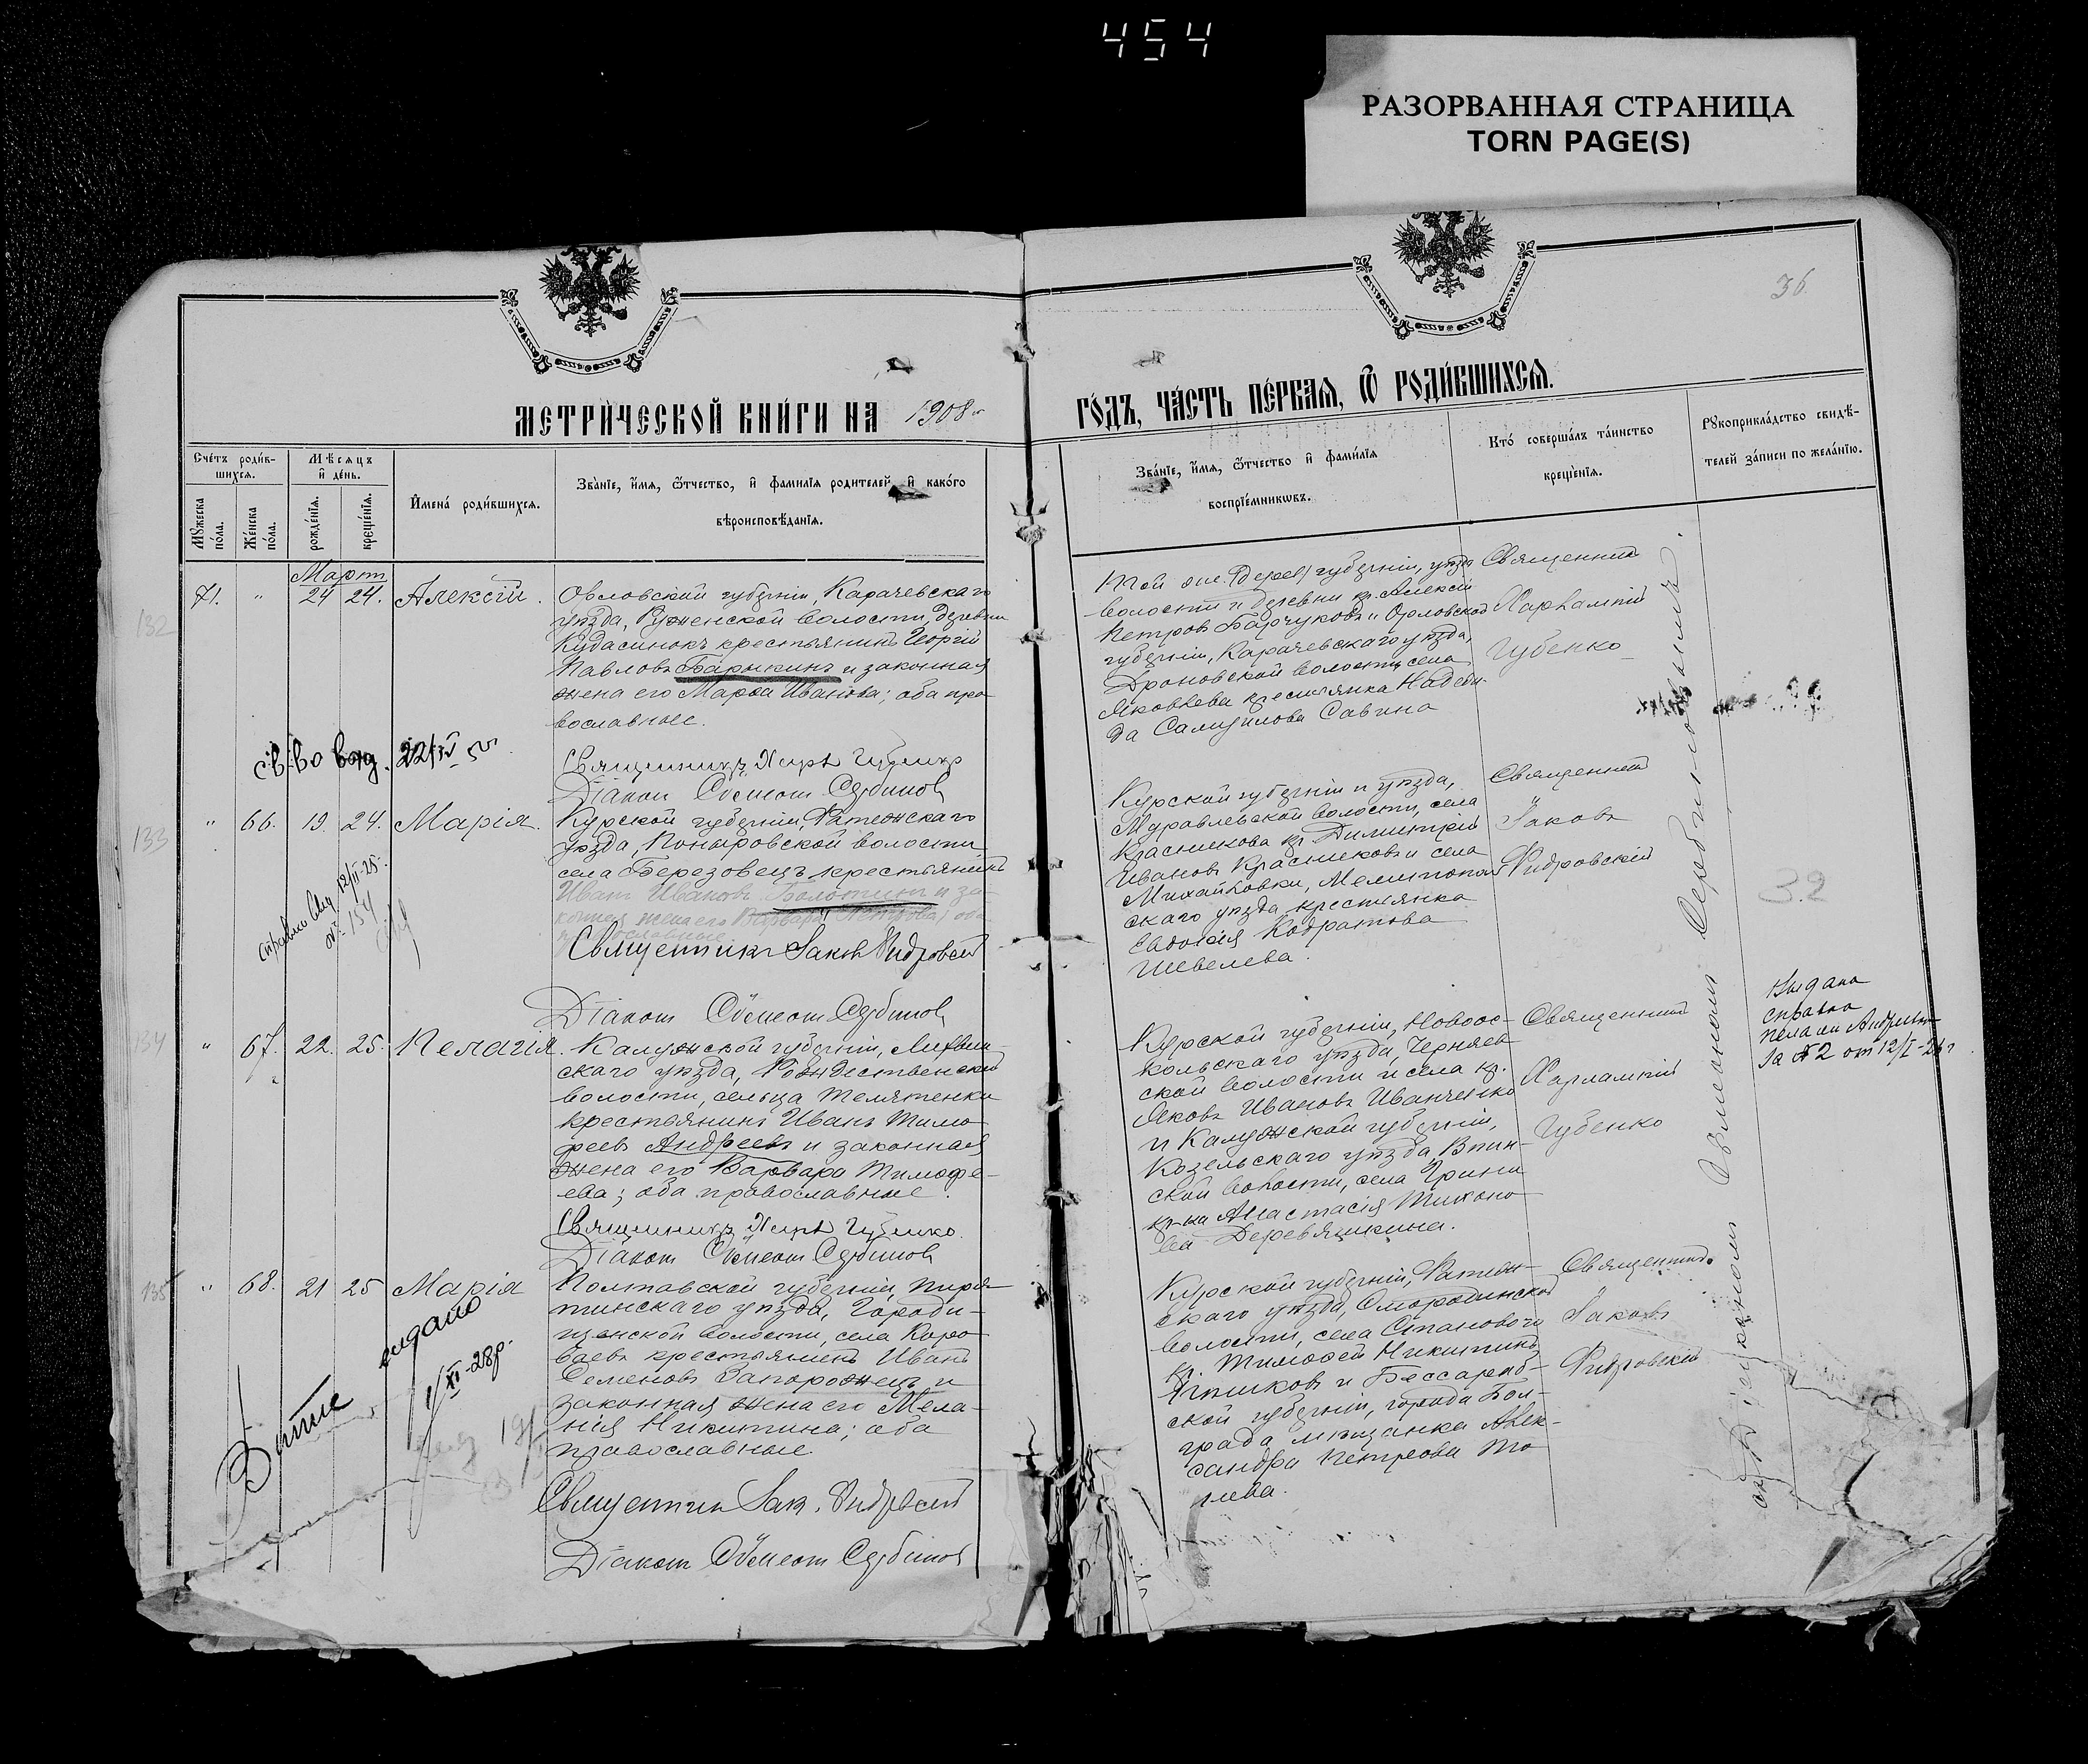 454
РАЗОРВАННАЯ СТРАНИЦА
TORN PAGE(S)
36
МЕТРИ́ЧЕСКОЙ КНИ́ГИ НА 1908
ГО́ДЪ, ЧА́СТЬ ПЕ́РВАЯ, Ѿ РОДИ́ВШИХСЯ.
Сче́тъ роди́в-
шихся.
Мѣ́сяцъ
и҆ де́нь.
Мꙋ́жеска по́ла.
Же́нска по́ла.
рожде́нїя.
креще́нїя.
И҆мена̀ роди́вшихся.
Зва́нїе, и҆́мя, ѻ҆́тчество, и҆ фами́лїя родителей, и҆ како́го
вѣроисповѣ́данїя.
Зва́нїе, и҆́мя, ѻ҆́тчество и҆ фами́лїя
воспрїе́мникѡвъ.
Кто̀ соверша́лъ та́инство
креще́нїя.
Рꙋкоприкла́дство свидѣ́-
телей за́писи по жела́нїю.
132
Мартъ
71. " 24 24. Алексій.
Орловской губерніи, Карачевскаго
уѣзда, Руженской волости, деревни
Кудасинокъ крестьянинъ Георгій
Павловъ Барыкинъ и законная
жена его Марѳа Иванова; оба пра-
вославные.
Священникъ Харл Губенко
Діаконъ Сѵмеонъ Сербиновъ
Той же губерніи, уѣзда
волости и деревни кр. Алексій
Петровъ Барчуковъ и Орловской
губерніи, Карачевскаго уѣзда,
Дроновской волости, села
Яковлева крестьянка Надеж-
да Самуилова Савина
Священникъ
Харлампій
Губенко
св-во выд. 22/IV
133
" 66. 19. 24. Марія.
Курской губерніи, Фатежскаго
уѣзда, Поныровской волости
села Березовецъ крестьянинъ
Иванъ Ивановъ Болотинъ и за-
конная жена его Варвара Петрова; оба
православные
Священникъ Іаковъ
Діаконъ Сѵмеонъ Сербиновъ
Курской губерніи и уѣзда,
Муравлевской волости, села
Красникова кр. Димитрій
Ивановъ Красниковъ и села
Михайловки, Мелитополь
скаго уѣзда крестьянка
Евдокія Кодратова
Шевелева.
Священникъ
Іаковъ
32
№ 154
134
" 67. 22. 25. Пелагія.
Калужской губерніи, Лихвин-
скаго уѣзда, Рождественской
волости, сельца Телятенки
крестьянинъ Иванъ Тимо
феевъ Андреевъ и законная
жена его Варвара Тимофе-
ева; оба православные.
Священникъ Харл Губенко.
Діаконъ Сѵмеонъ Сербиновъ
Курской губерніи, Новоос-
кольскаго уѣзда, Черняев
ской волости и села кр.
Яковъ Ивановъ Иванченко
и Калужской губерніи,
Козельскаго уѣзда
ской волости, села
кр-ка Анастасія Тихоно
ва Деревяшкина.
Священникъ
Харлампій
Губенко
Выдана
справка
Пелагии Андреевой
за № 2 от 12/I-26 г
135
" 68. 21 25 Марія
Полтавской губерніи, Пиря-
тинскаго уѣзда, Городи-
щенской волости, села Каро
ваевъ крестьянинъ Иванъ
Семеновъ Запорожецъ и
законная жена его Мела-
нія Никитина; оба
православные.
Священник Іак.
Діаконъ Сѵмеонъ Сербиновъ
Курской губерніи, Фатеж-
скаго уѣзда, Смородинской
волости, села Становаго
кр. Тимоѳей Никитинъ
и Бессараб-
ской губерніи, города Бол-
града мѣщанка Алек-
сандра Петрова
Священникъ
Іаковъ
видано
1/XI-28р.
Діакономъ Сѵмеономъ Сербиновымъ.